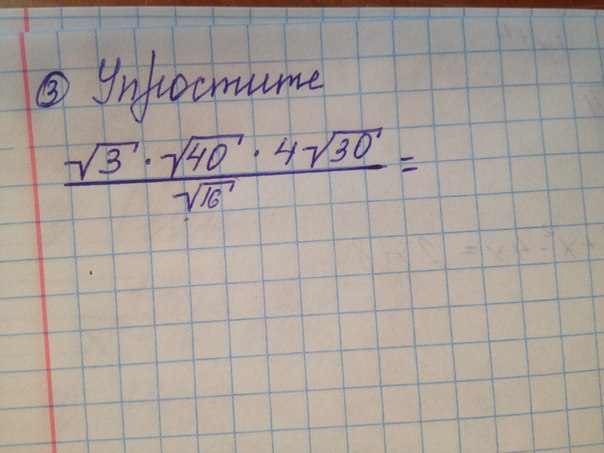 ③ Упростите
√3 · √40 · 4√30 =
√16